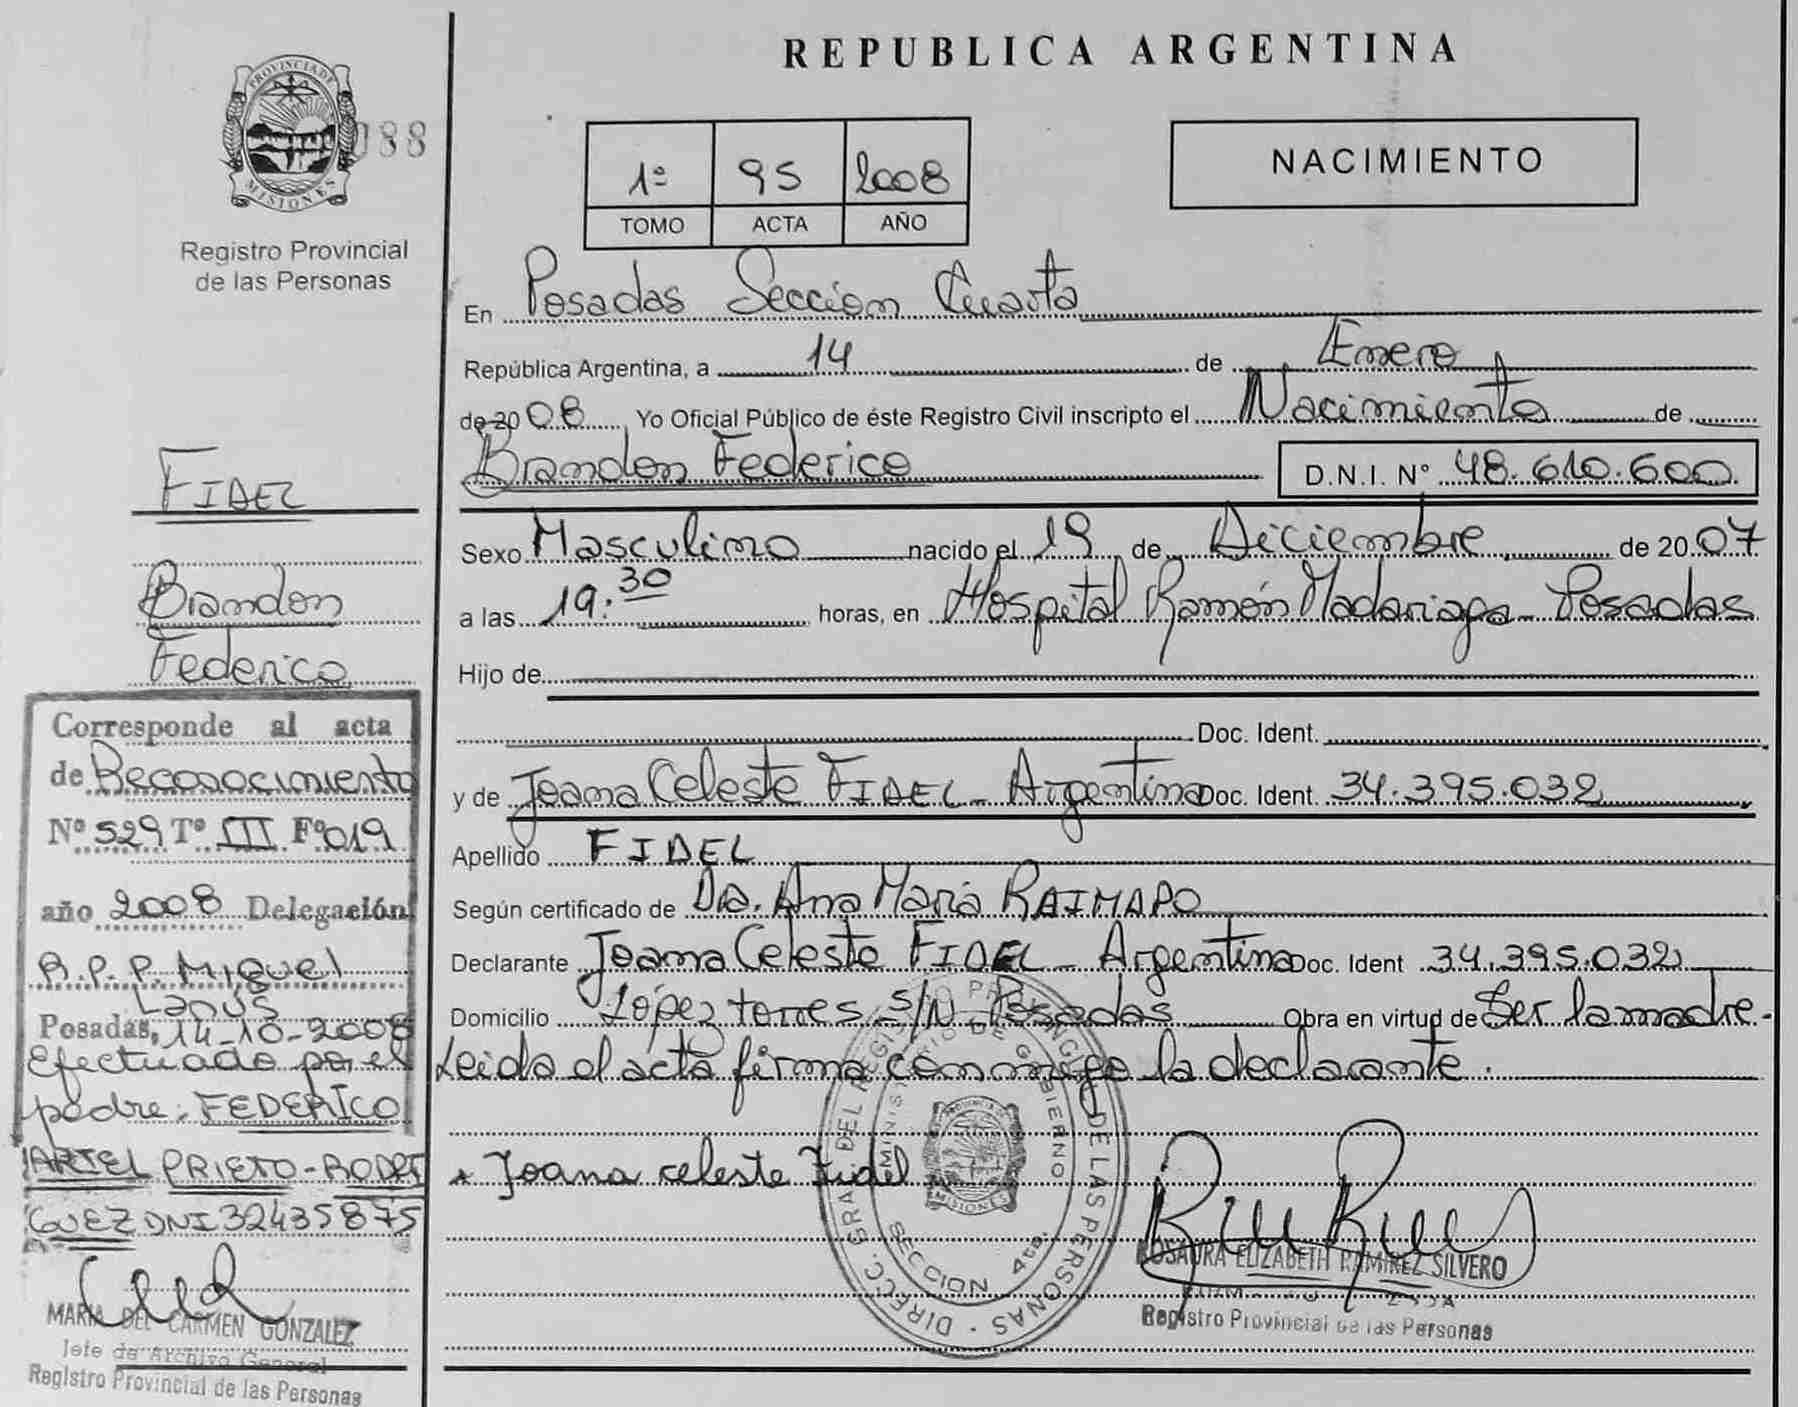 REPUBLICA ARGENTINA
PROVINCIA DE
MISIONES
088
Registro Provincial
de las Personas
1º 95 2008
TOMO ACTA AÑO
NACIMIENTO
En Posadas Seccion Cuarta
República Argentina, a 14 de Enero
de 2008 Yo Oficial Público de éste Registro Civil inscripto el Nacimiento de
Brandon Federico D.N.I. Nº 48.610.600
Sexo Masculino nacido el 19 de Diciembre de 2007
a las 19:30 horas, en Hospital Ramón Madariaga - Posadas
Hijo de
Doc. Ident.
y de Joana Celeste FIDEL - Argentina Doc. Ident. 34.395.032
Apellido FIDEL
Según certificado de Dra. Ana María RAIMAPO
Declarante Joana Celeste FIDEL - Argentina Doc. Ident 34.395.032
Domicilio López torres s/N Posadas Obra en virtud de Ser la madre.-
Leida el acta firma conmigo la declarante.
Joana celeste Fidel
DIRECC. GRAL. DEL REGISTRO PROVINCIAL DE LAS PERSONAS
MINISTERIO DE GOBIERNO
SECCION 4ta.
PROVINCIA DE
MISIONES
ROSAURA ELIZABETH RAMIREZ SILVERO
Registro Provincial de las Personas
FIDEL
Brandon
Federico
Corresponde al acta
de Reconocimiento
Nº 529 Tº III Fº 019
año 2008 Delegación
R.P.P. Miguel
Lanús
Posadas, 14-10-2008
Efectuado por el
padre: FEDERICO
ARIEL PRIETO-RODRI
GUEZ DNI 32435875
MARIA DEL CARMEN GONZALEZ
Jefe de Archivo General
Registro Provincial de las Personas